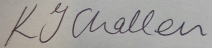 K J Challen